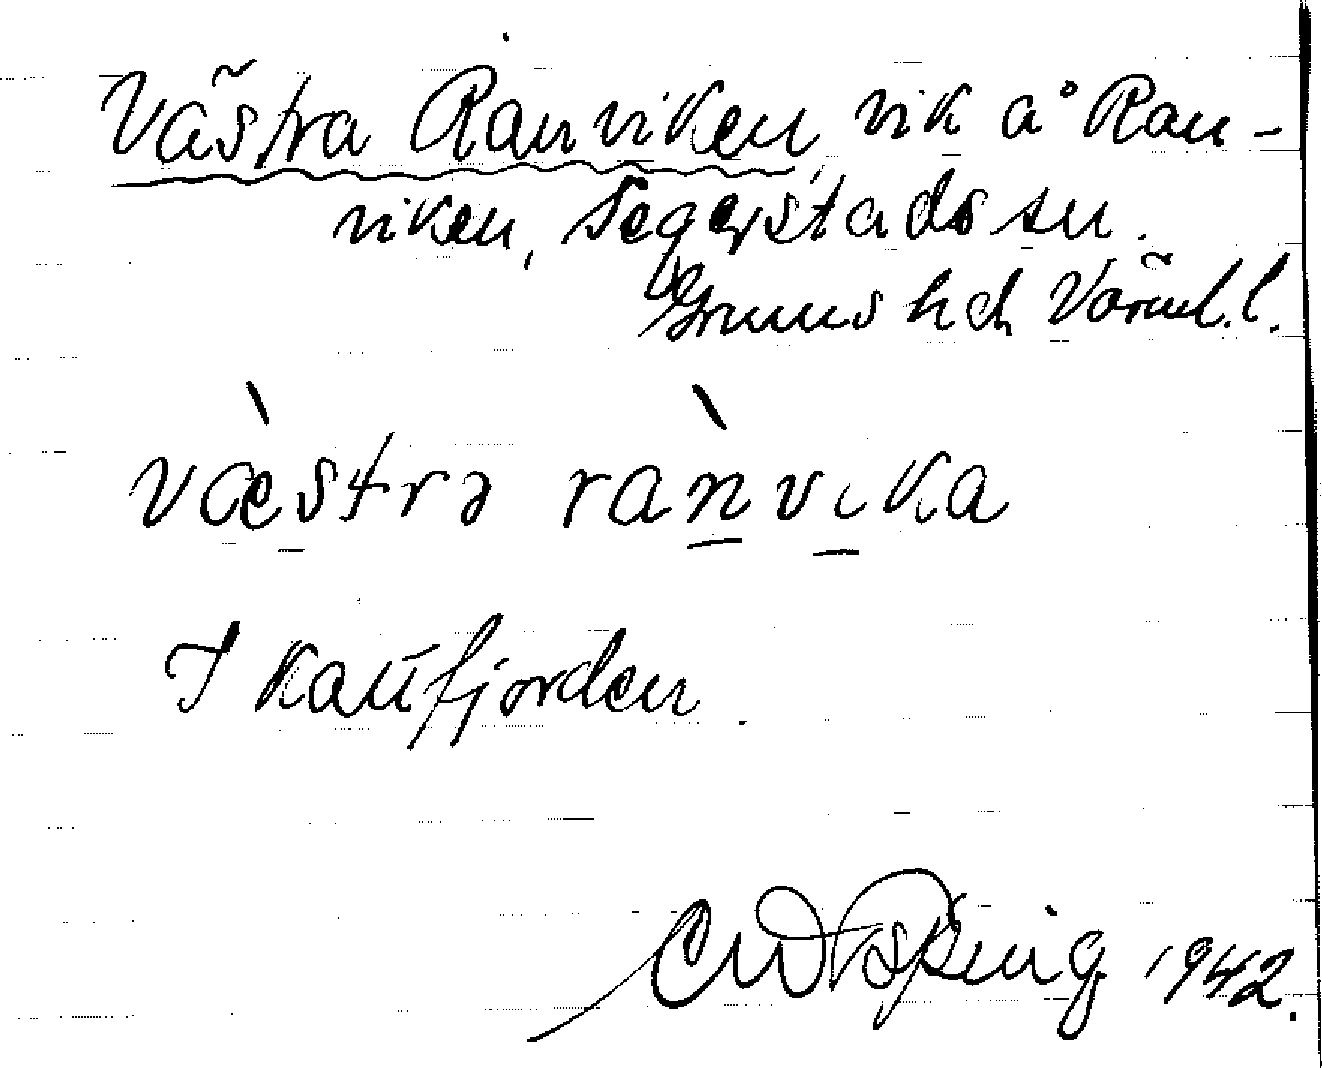 Västra Ranviken, vik å Ran-
viken, Segerstads sn.
Grums hd, Värml. l.
væ̀stra rànvika
I Kattfjorden.
1942.